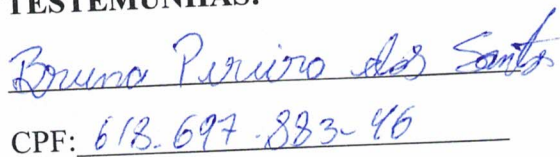 TESTEMUNHAS:
Bruna Pereira dos Santos
CPF: 618.697.883-46